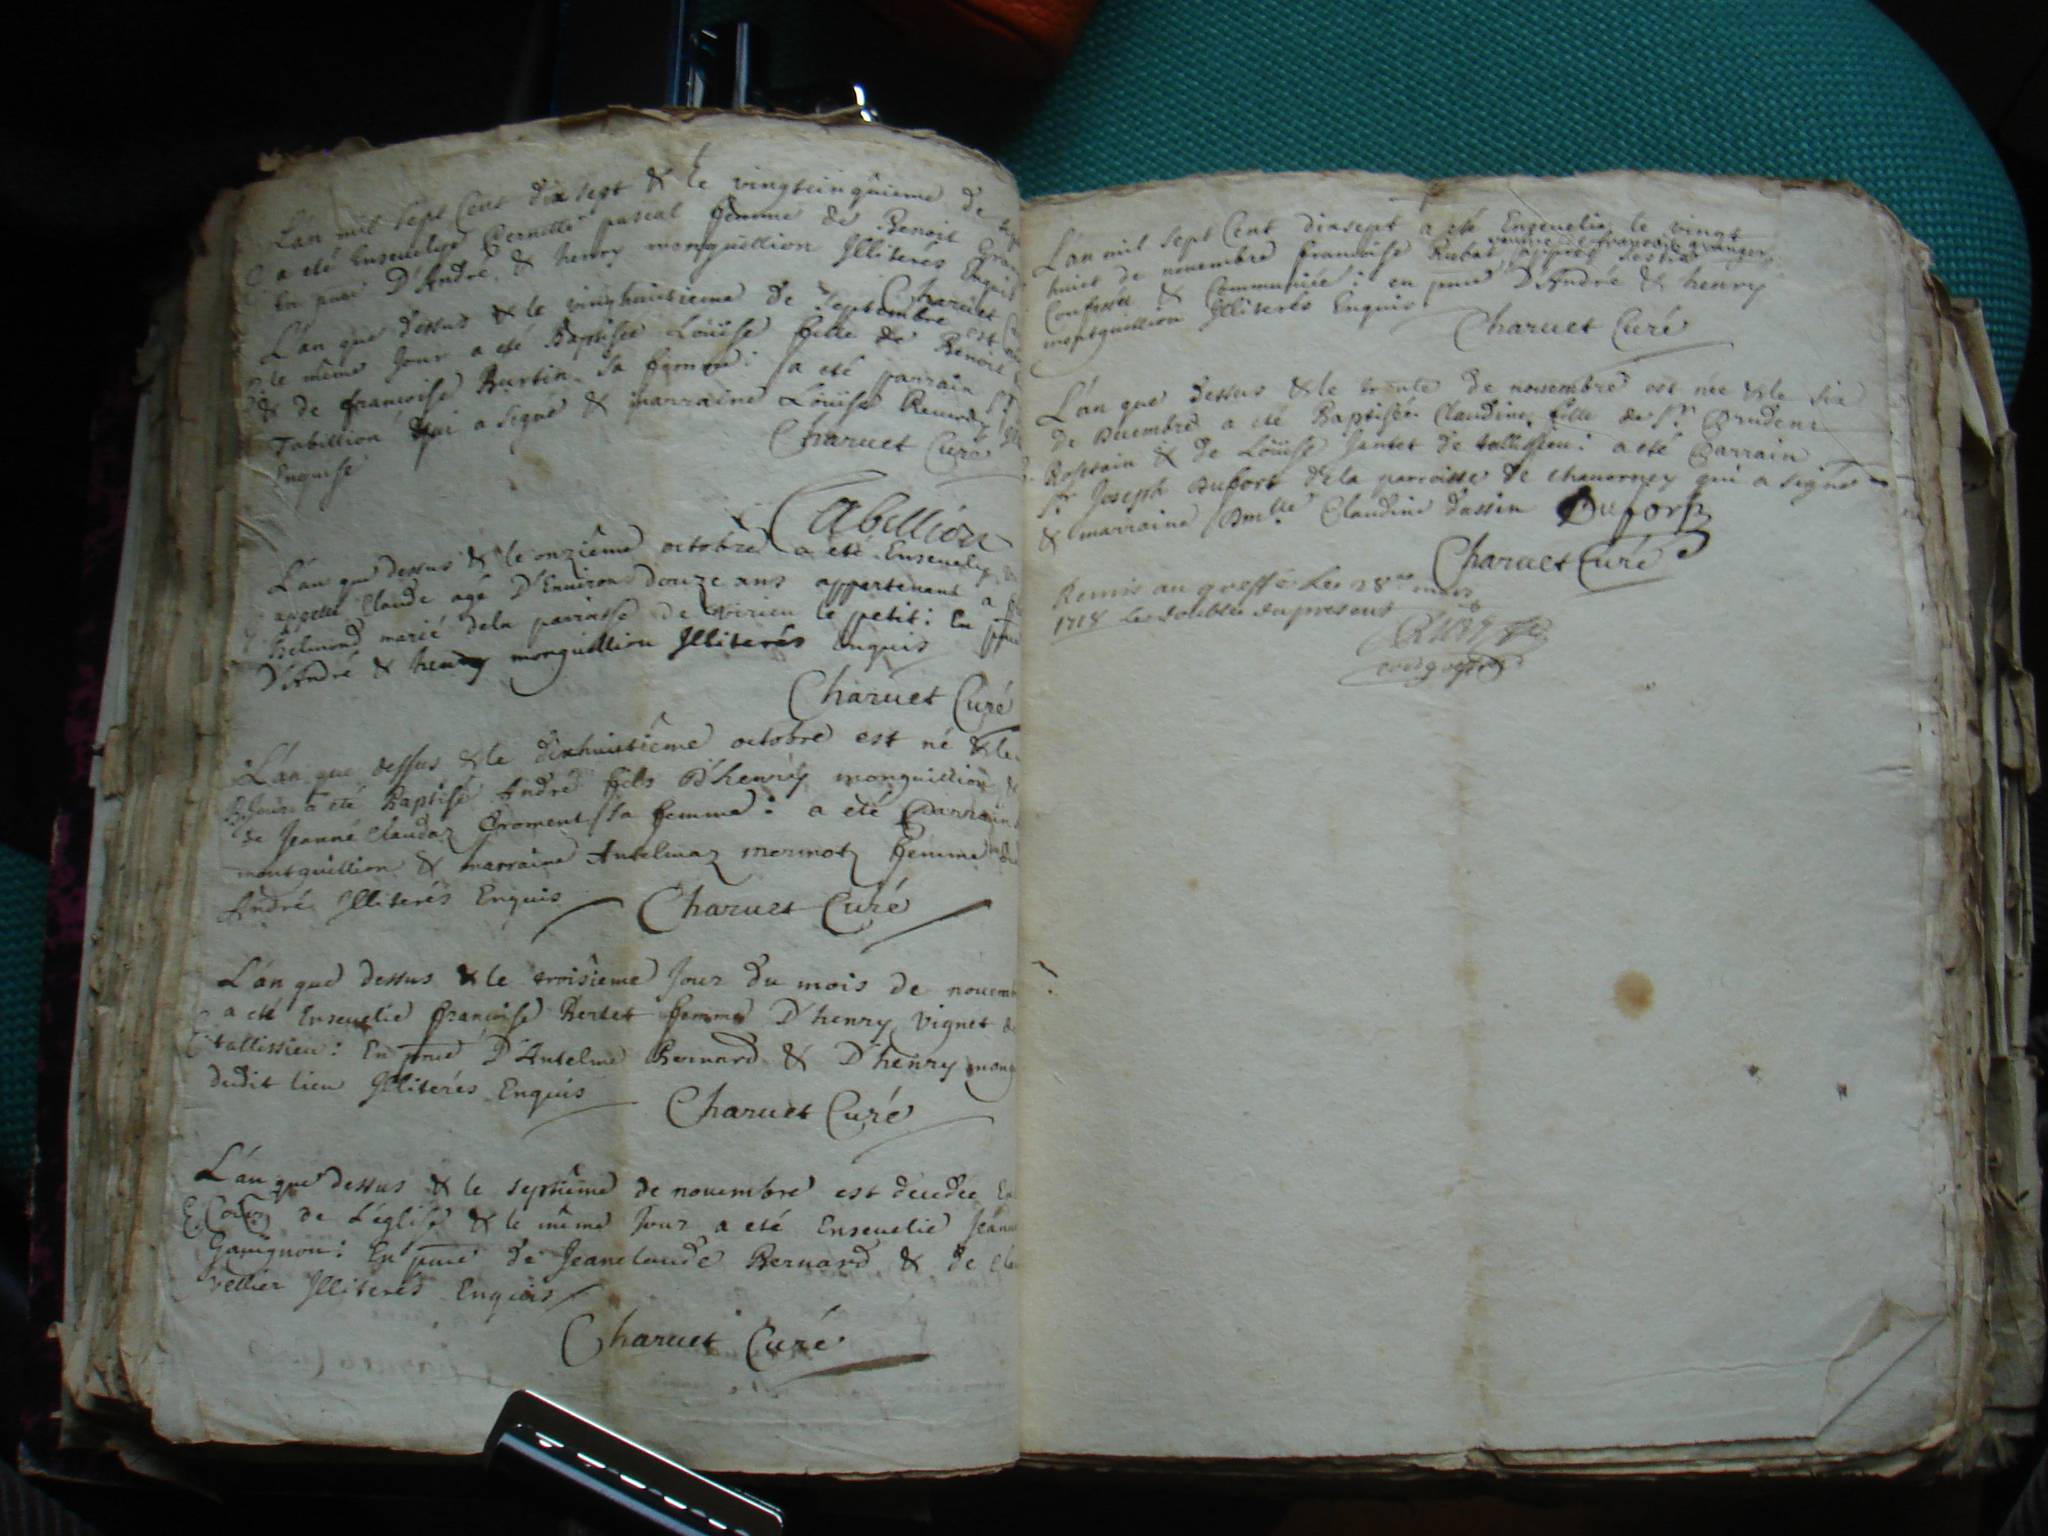 L'an mil sept Cent dix sept & le vingtcinquieme de
a eté Ensevelie Pernette pascal femme de Benoit
En pnce D'André & henry monquillion Illiterés Enquis
Charuet
L'an que dessus & le vinghuitieme de septembre est
le même Jour a eté Baptisée Loüise fille de Benoit
& de francoise Burtin sa femme: a eté parrain
Tabillion qui a signé & marraine Loüise
Enquise
Charuet Curé
Tabillion
L'an que dessus & le onziême octobre a eté Enseuely
appellé Claude agé D'Environ douze ans appartenant a
Belmond marié dela parroisse de virieu le petit: En pnce
D'André & henry monquillion Illiterés Enquis
Charuet Curé
L'an que dessus & le dixhuitiême octobre est né & le
Jour a eté Baptisé André fils D'henry monquillion &
de Jeanne Claudaz froment sa femme: a eté Parrain
montquillion & marraine Antelmaz mermotz femme
André Illiterés Enquis
Charuet Curé
L'an que dessus & le troisieme Jour du mois de
a eté Enseuelie francoise Bertet femme D'henry vignet
tallissieu: En pnce D'Antelme Bernard & D'henry
dudit lieu Illiterés Enquis
Charuet Curé
L'an que dessus & le septiême de nouembre est decedée
de L'église & le même Jour a eté Enseuelie
Gauignon: En pnce de Jeanclaude Bernard & de
vellier Illiterés Enquis
Charuet Curé
L'an mil sept Cent dixsept a eté Enseuelie le vingt
veuve de francois granger
huit de nouembre francoise Rubat appres s'estre
Confessée & Communiée: en pnce D'André & henry
montquillion Illiterés Enquis
Charuet Curé
L'an que dessus & le trente de nouembre est née & le six
de Decembre a eté Baptisée Claudine fille de Sr. Prudent
Rostain & de Loüise Jantet de tallissieu: a eté Parrain
Sr. Joseph Dufort dela parroisse de chauorney qui a signé
& marraine Dmlle. Claudine dassin
Dufort
Charuet Curé
Remis au greffe le 28me mars
1718 les doubles du present